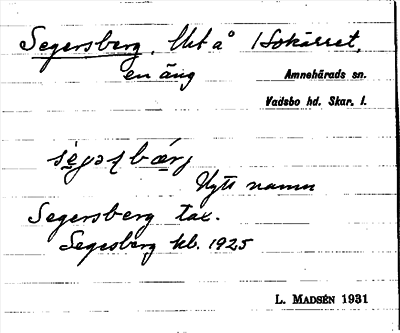 Segersberg. Ut å Hokärret,
en äng
Amnehärads sn.
Vadsbo hd. Skar. l.
Nytt namn
Segersberg tax.
Segesberg kb. 1925
L. MADSÉN 1931